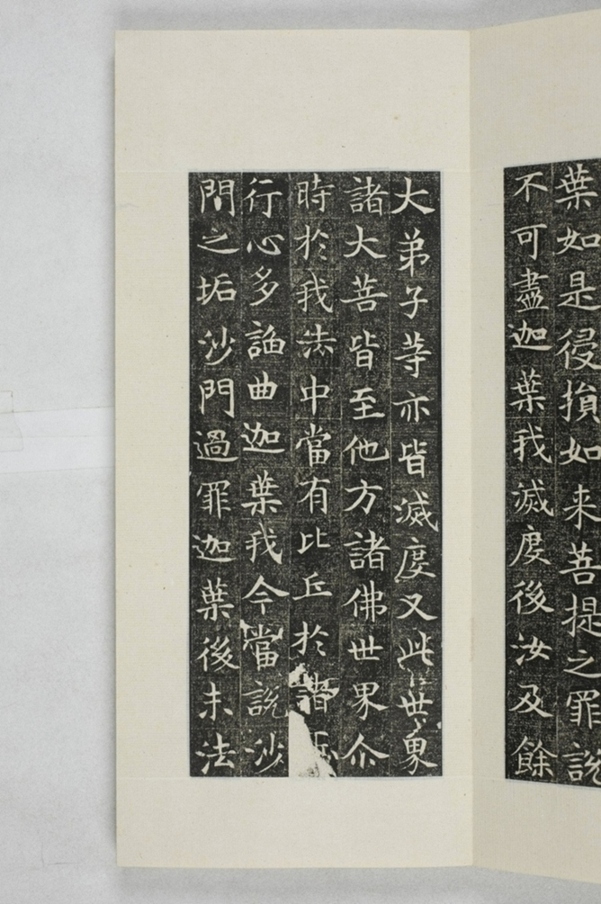 葉如是侵損如来菩提之罪説
不可盡迦葉我滅度後汝及餘
大弟子等亦皆滅度又此世界
諸大菩皆至他方諸佛世界尒
時於我法中當有比丘於諸
行心多諂曲迦葉我今當説沙
門之垢沙門過罪迦葉後末法